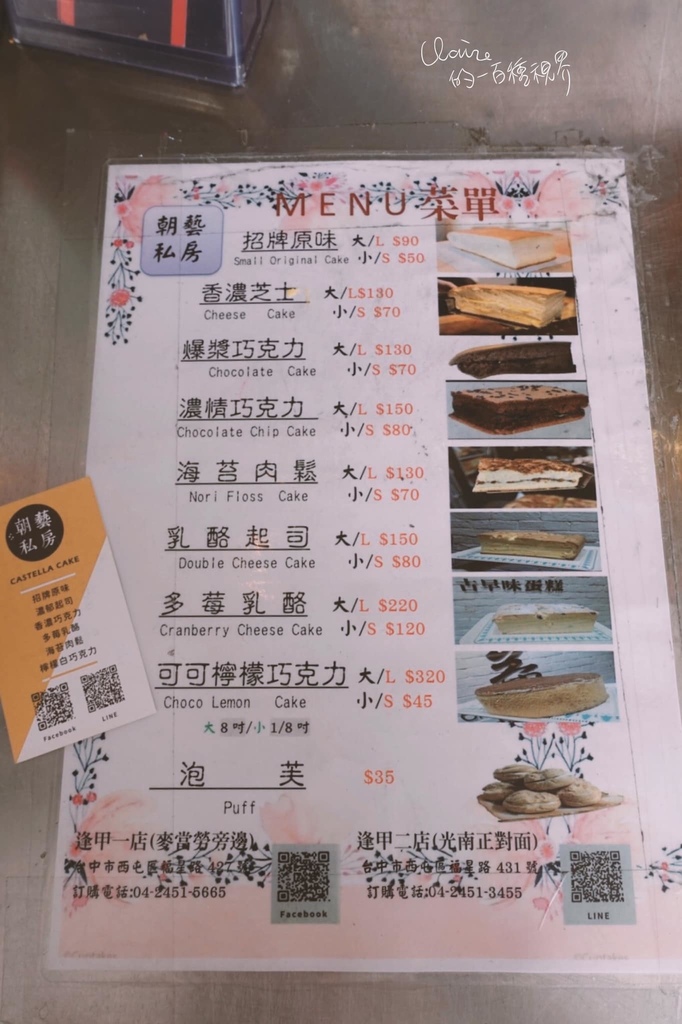 Claire
的一百種視界
MENU 菜單
朝藝
私房
招牌原味 大/L $90
Small Original Cake 小/S $50
香濃芝士 大/L$130
Cheese Cake 小/S $70
爆漿巧克力 大/L $130
Chocolate Cake 小/S $70
濃情巧克力 大/L $150
Chocolate Chip Cake 小/S $80
海苔肉鬆 大/L $130
Nori Floss Cake 小/S $70
乳酪起司 大/L $150
Double Cheese Cake 小/S $80
古早味蛋糕
多莓乳酪 大/L $220
Cranberry Cheese Cake 小/S $120
可可檸檬巧克力 大/L $320
Choco Lemon Cake 小/S $45
大 8 吋/小 1/8 吋
泡芙 $35
Puff
逢甲一店(麥當勞旁邊)
台中市西屯區福星路 427
訂購電話:04-2451-5665
Facebook
逢甲二店(光南正對面)
台中市西屯區福星路 431 號
訂購電話:04-2451-3455
LINE
朝藝
私房
CASTELLA CAKE
招牌原味
濃郁起司
香濃巧克力
多莓乳酪
海苔肉鬆
檸檬白巧克力
Facebook
LINE